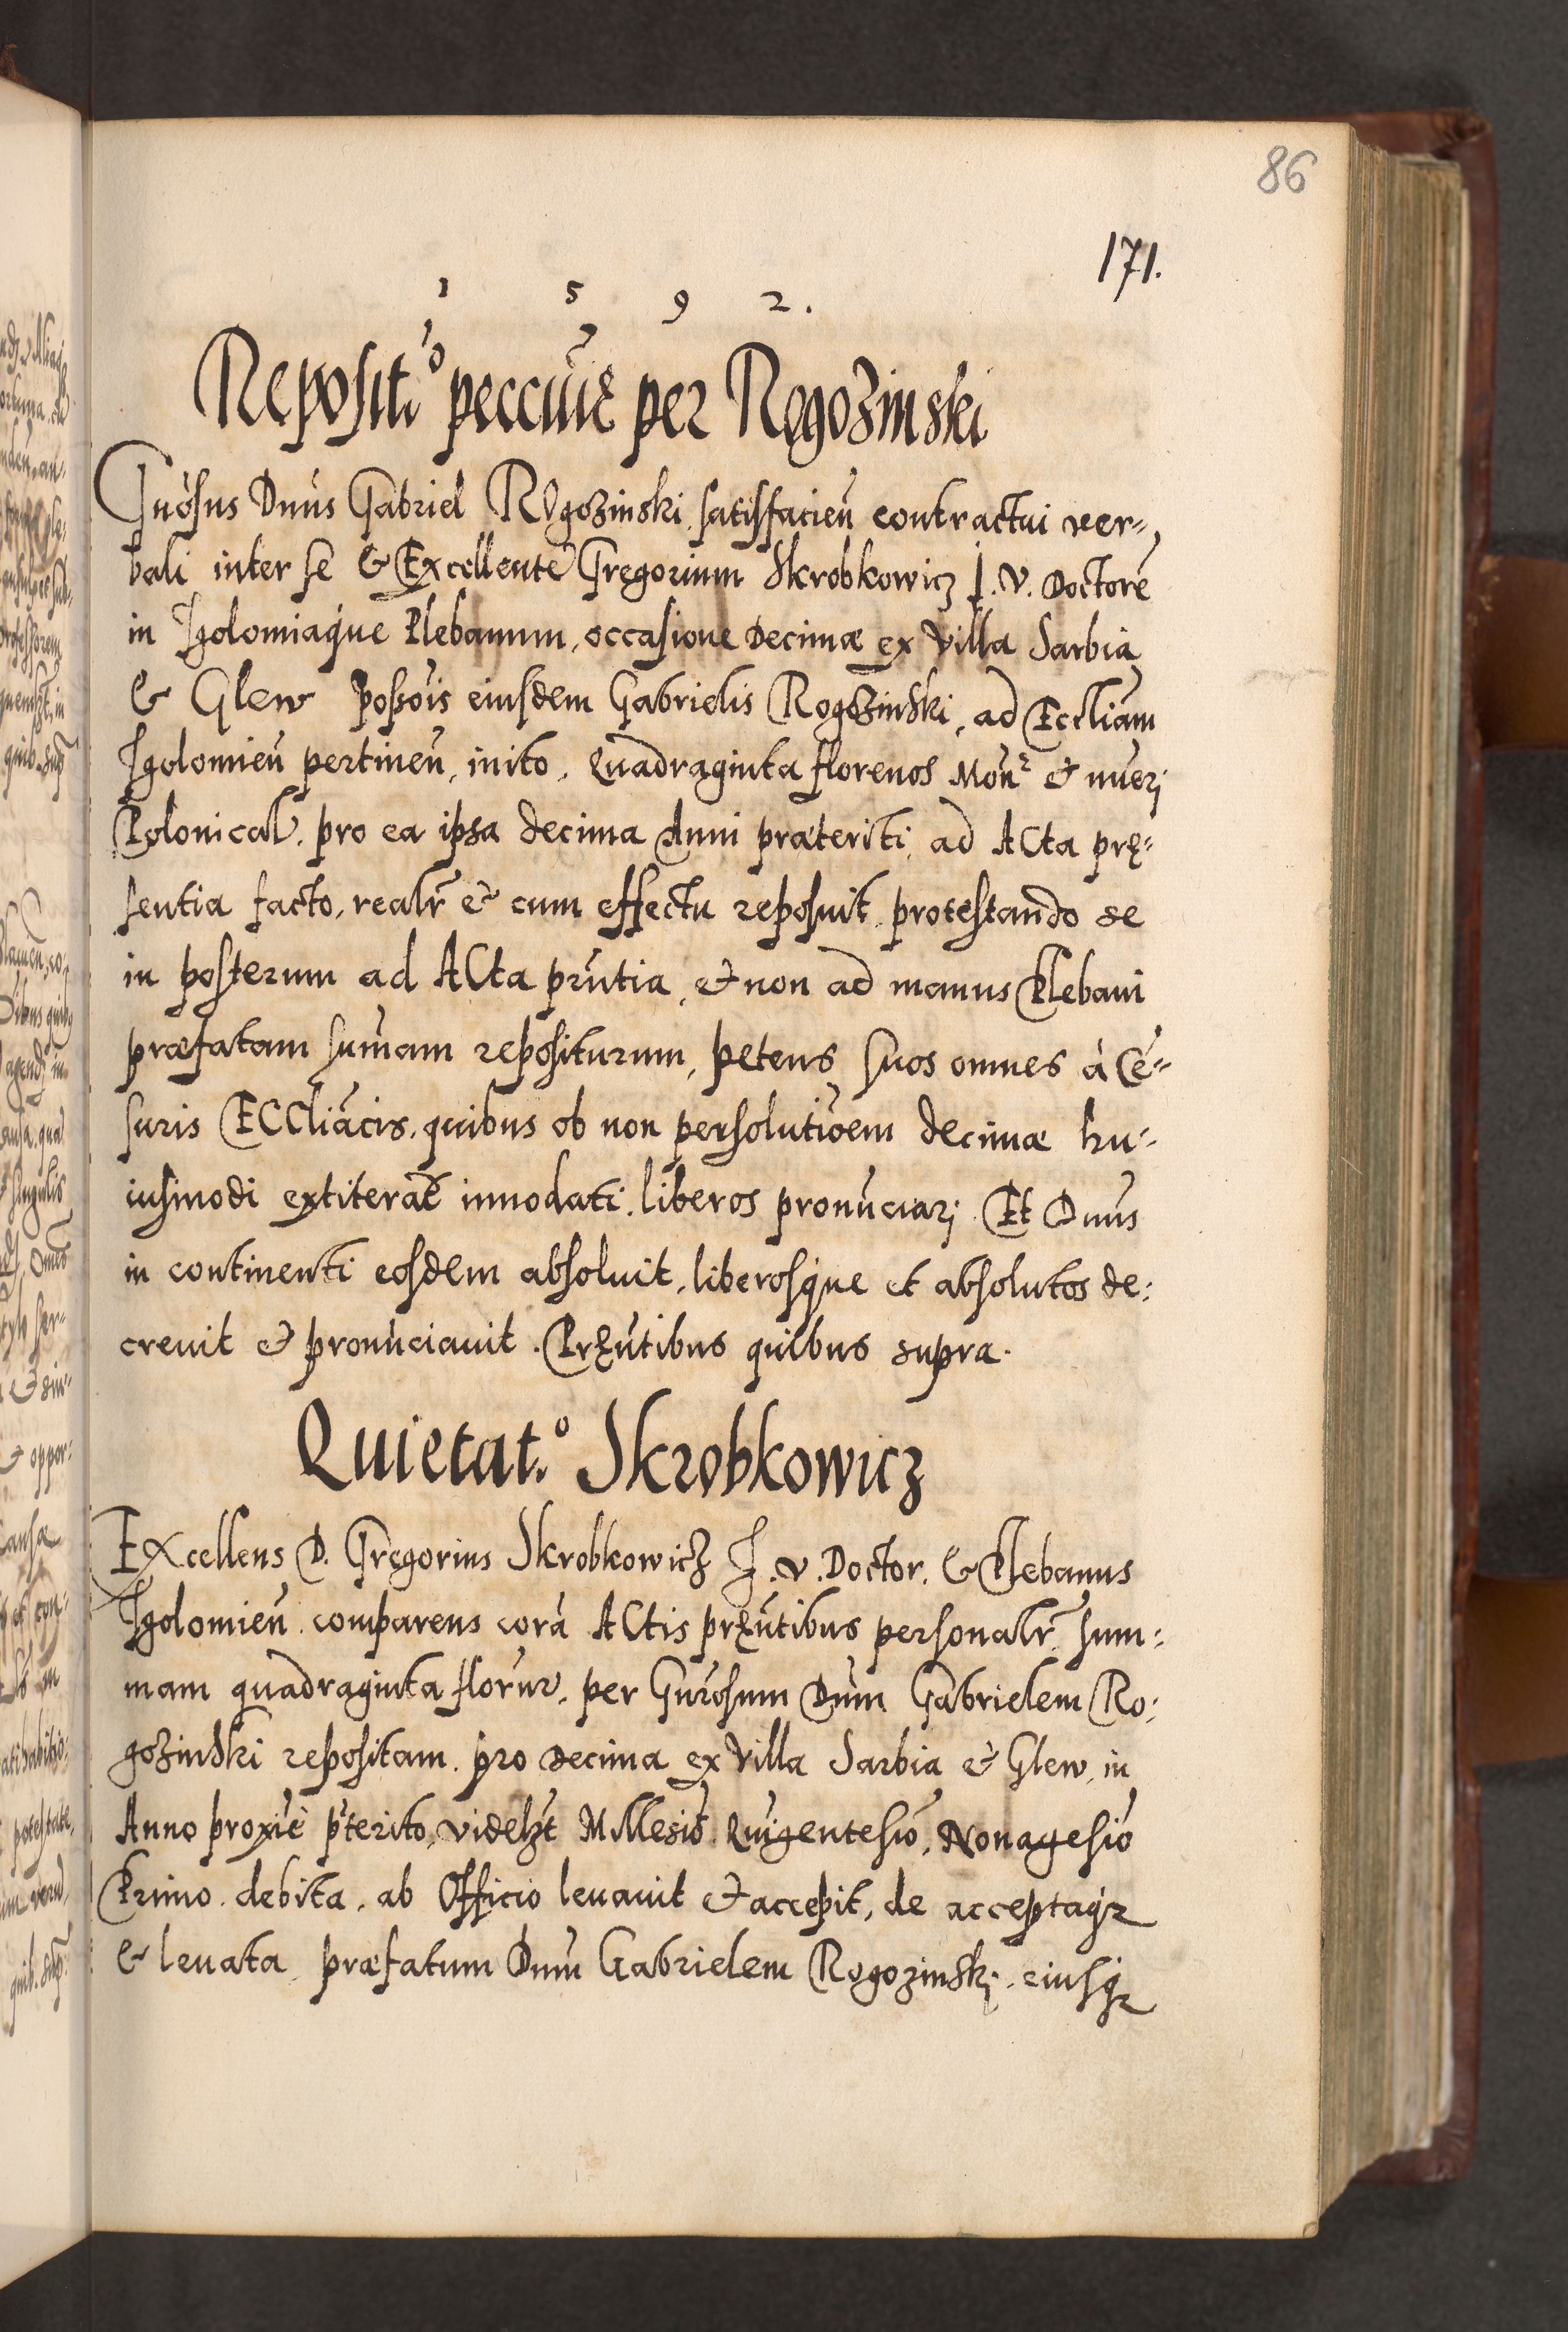 86
171.
1 5 9 2.
Reposit.º peccuīę per Rogozinski
Gnōsus Dnūs Gabriel Rogozinski, satisfacieñ contractui ver-
bali inter se & Excellentē Gregorium Skrobkowicz J. V. Doctorē
in Igolomiaque Plebanum, occasione Decimæ ex Villa Sarbia
& Glew possōis eiusdem Gabrielis Rogozinski, ad Eccliām
Igolomieñ pertineñ, inito, Quadraginta florenos Moñ & nŭerj
Polonical. pro ea ipsa decima Anni præteriti, ad Acta prę-
sentia facto, realr̃ & cum effectu reposuit, protestando se
in posterum ad Acta prñtia, & non ad manus Plebani
præfatam sum̄am repositurum, petens suos omnes à Cē-
suris Eccliācis, quibus ob non persolutiōem decimæ hu-
iusmodi extiterāt innodati, liberos pronūciarj. Et Dnūs
in continenti eosdem absoluit, liberosque et absolutos de-
creuit & pronūciauit. Pręñtibus quibus supra.
Quietat.º Skrobkowicz
Excellens D. Gregorius Skrobkowicz J. V. Doctor, & Plebanus
Igolomieñ comparens corā Actis pręñtibus personalr̃ sum-
mam quadraginta florur, per Gnrōsum Dūm Gabrielem Ro-
gozinski repositam, pro decima ex Villa Sarbia & Glew, in
Anno proxiē p̄terito, videlzt Millesiō Quigentesiō, Nonagesiō
Primo debita, ab Officio leuauit & accepit, de acceptaq̃
& leuata præfatum Dnūm Gabrielem Rogozinskj, eiusq̃